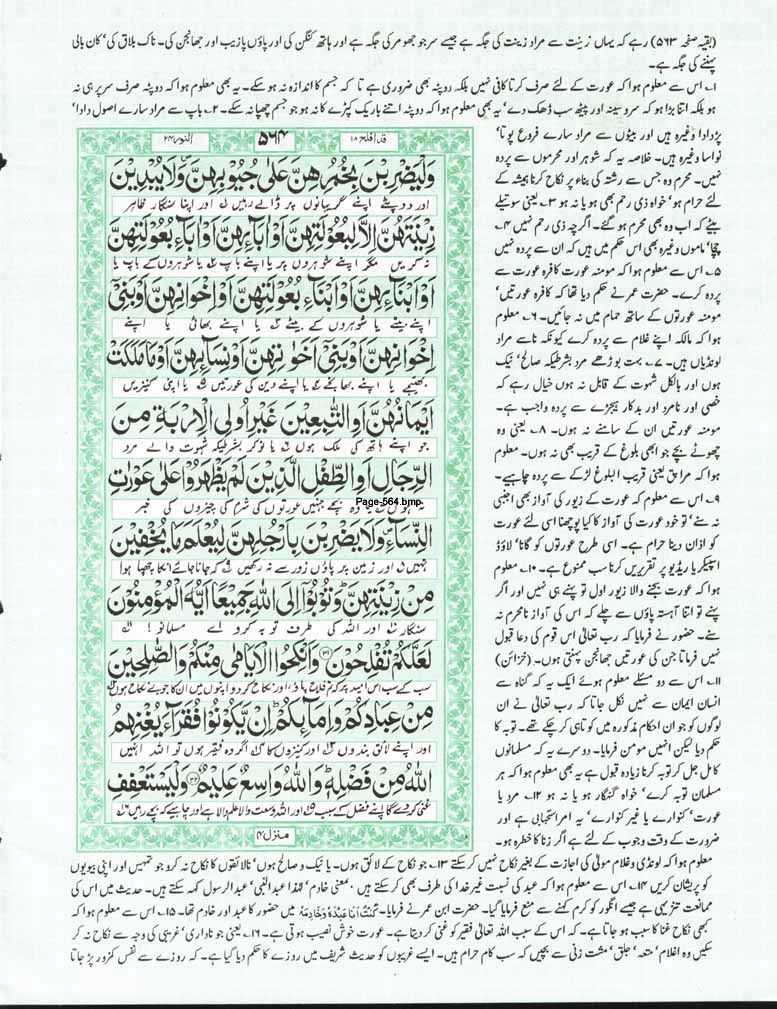 (بقیہ صفحہ ۵۶۳) رہے کہ یہاں زینت سے مراد زینت کی جگہ ہے جیسے سر جو جھومر کی جگہ ہے اور ہاتھ کنگن کی اور پاؤں پازیب اور جھانجن کی۔ ناک بلاق کی، کان بالی
پہننے کی جگہ ہے۔
۱۔ اس سے معلوم ہوا کہ عورت کے لئے صرف کرتا کافی نہیں بلکہ دوپٹہ بھی ضروری ہے تا کہ جسم کا اندازہ نہ ہو سکے۔ یہ بھی معلوم ہوا کہ دوپٹہ صرف سر پر ہی نہ
ہو بلکہ اتنا بڑا ہو کہ سر و سینہ اور پیٹھ سب ڈھک دے، یہ بھی معلوم ہوا کہ دوپٹہ اتنے باریک کپڑے کا نہ ہو جو جسم چھپا نہ سکے۔ ۲۔ باپ سے مراد سارے اصول دادا،
پڑدادا وغیرہ ہیں اور بیٹوں سے مراد سارے فروع پوتا،
نواسا وغیرہ ہیں۔ خلاصہ یہ کہ شوہر اور محرموں سے پردہ
نہیں۔ محرم وہ جس سے رشتہ کی بناء پر نکاح کرنا ہمیشہ کے
لئے حرام ہو، خواہ ذی رحم بھی ہو یا نہ ہو ۳۔ یعنی سوتیلے
بیٹے کہ اب وہ بھی محرم ہو گئے۔ اگرچہ ذی رحم نہیں ۴۔
چچا، ماموں وغیرہ بھی اس حکم میں ہیں کہ ان سے پردہ نہیں
۵۔ اس سے معلوم ہوا کہ مومنہ عورت کافرہ عورت سے
پردہ کرے۔ حضرت عمر نے حکم دیا تھا کہ کافرہ عورتیں،
مومنہ عورتوں کے ساتھ حمام میں نہ جائیں۔ ۶۔ معلوم
ہوا کہ مالکہ اپنے غلام سے پردہ کرے کیونکہ نا سے مراد
لونڈیاں ہیں۔ ۷۔ بہت بوڑھے مرد بشرطیکہ صالح، نیک
ہوں اور بالکل شہوت کے قابل نہ ہوں خیال رہے کہ
خصی اور نامرد اور بدکار ہیجڑے سے پردہ واجب ہے۔
مومنہ عورتیں ان کے سامنے نہ ہوں۔ ۸۔ یعنی وہ
چھوٹے بچے جو ابھی بلوغ کے قریب بھی نہ ہوں۔ معلوم
ہوا کہ مراہق یعنی قریب البلوغ لڑکے سے پردہ چاہیے۔
۹۔ اس سے معلوم کہ عورت کے زیور کی آواز بھی اجنبی
نہ سنے، تو خود عورت کی آواز کا کیا پوچھنا اسی لئے عورت
کو اذان دینا حرام ہے۔ اسی طرح عورتوں کو گانا، لاؤڈ
اسپیکر یا ریڈیو پر تقریریں کرنا سب ممنوع ہے۔ ۱۰۔ معلوم
ہوا کہ عورت بجنے والا زیور اول تو پہنے ہی نہیں اور اگر
پہنے تو اتنا آہستہ پاؤں سے چلے کہ اس کی آواز نامحرم نہ
سنے۔ حضور نے فرمایا کہ رب تعالیٰ اس قوم کی دعا قبول
نہیں فرماتا جن کی عورتیں جھانجن پہنتی ہوں۔ (خزائن)
۱۱۔ اس سے دو مسئلے معلوم ہوئے ایک یہ کہ گناہ سے
انسان ایمان سے نہیں نکل جاتا کہ رب تعالیٰ نے ان
لوگوں کو جو ان احکام مذکورہ میں کوتاہی کر چکے تھے۔ توبہ کا
حکم دیا لیکن انہیں مومن فرمایا۔ دوسرے یہ کہ مسلمانوں
کا مل جل کر توبہ کرنا زیادہ قبول ہے یہ بھی معلوم ہوا کہ ہر
مسلمان توبہ کرے، خواہ گنہگار ہو یا نہ ہو ۱۲۔ مرد یا
عورت، کنوارے یا غیر کنوارے، یہ امر استحبابی ہے اور
ضرورت کے وقت وجوب کے لئے ہے اگر زنا کا خطرہ ہو۔
قد افلح ۱۸
۵۶۴
النور ۲۴
وَلْيَضْرِبْنَ بِخُمُرِهِنَّ عَلٰى جُيُوْبِهِنَّ وَلَا يُبْدِيْنَ
اور دوپٹے اپنے گریبانوں پر ڈالے رہیں اور اپنا سنگار ظاہر
زِيْنَتَهُنَّ اِلَّا لِبُعُوْلَتِهِنَّ اَوْ اٰبَآءِهِنَّ اَوْ اٰبَآءِ بُعُوْلَتِهِنَّ
نہ کریں مگر اپنے شوہروں پر یا اپنے باپ یا شوہروں کے باپ یا
اَوْ اَبْنَآءِهِنَّ اَوْ اَبْنَآءِ بُعُوْلَتِهِنَّ اَوْ اِخْوَانِهِنَّ اَوْ بَنِيْۤ
اپنے بیٹے یا شوہروں کے بیٹے یا اپنے بھائی یا اپنے
اِخْوَانِهِنَّ اَوْ بَنِيْۤ اَخَوٰتِهِنَّ اَوْ نِسَآءِهِنَّ اَوْ مَا مَلَكَتْ
بھتیجے یا اپنے بھانجے یا اپنے دین کی عورتیں یا اپنی کنیزیں
اَيْمَانُهُنَّ اَوِ التّٰبِعِيْنَ غَيْرِ اُولِي الْاِرْبَةِ مِنَ
جو اپنے ہاتھ کی ملک ہوں یا نوکر بشرطیکہ شہوت والے مرد
الرِّجَالِ اَوِ الطِّفْلِ الَّذِيْنَ لَمْ يَظْهَرُوْا عَلٰى عَوْرٰتِ
نہ ہوں یا وہ بچے جنہیں عورتوں کی شرم کی چیزوں کی خبر
Page-564.bmp
النِّسَآءِ وَلَا يَضْرِبْنَ بِاَرْجُلِهِنَّ لِيُعْلَمَ مَا يُخْفِيْنَ
نہیں اور زمین پر پاؤں زور سے نہ رکھیں کہ جانا جائے انکا چھپا ہوا
مِنْ زِيْنَتِهِنَّ وَتُوْبُوْۤا اِلَى اللّٰهِ جَمِيْعًا اَيُّهَ الْمُؤْمِنُوْنَ
سنگار اور اللہ کی طرف توبہ کرو اے مسلمانو!
لَعَلَّكُمْ تُفْلِحُوْنَ ۳۱ وَاَنْكِحُوا الْاَيَامٰى مِنْكُمْ وَالصّٰلِحِيْنَ
سب کے سب اس امید پر کہ تم فلاح پاؤ، اور نکاح کر دو اپنوں میں ان کا جو بے نکاح ہوں
مِنْ عِبَادِكُمْ وَاِمَآىِٕكُمْ اِنْ يَّكُوْنُوْا فُقَرَآءَ يُغْنِهِمُ
اور اپنے لائق بندوں اور کنیزوں کا اگر وہ فقیر ہوں تو اللہ انہیں
اللّٰهُ مِنْ فَضْلِهٖ وَاللّٰهُ وَاسِعٌ عَلِيْمٌ ۳۲ وَلْيَسْتَعْفِفِ
غنی کر دے گا اپنے فضل کے سبب اور اللہ وسعت والا علم والا ہے اور چاہیے کہ بچے رہیں
منزل ۴
معلوم ہوا کہ لونڈی و غلام مولیٰ کی اجازت کے بغیر نکاح نہیں کر سکتے ۱۳۔ جو نکاح کے لائق ہوں۔ یا نیک و صالح ہوں، نالائقوں کا نکاح نہ کرو جو تمہیں اور اپنی بیویوں
کو پریشان کریں ۱۴۔ اس سے معلوم ہوا کہ عبد کی نسبت غیر خدا کی طرف بھی کر سکتے ہیں، بمعنی خادم، لہٰذا عبد النبی، عبد الرسول کہہ سکتے ہیں۔ حدیث میں اس کی
ممانعت تنزیہی ہے جیسے انگور کو کرم کہنے سے منع فرمایا گیا۔ حضرت ابن عمر نے فرمایا۔ كُنْتُ اَنَا عَبْدُهٗ وَخَادِمُهٗ میں حضور کا عبد اور خادم تھا۔ ۱۵۔ اس سے معلوم ہوا کہ
کبھی نکاح غنا کا سبب ہو جاتا ہے۔ کہ اس کے سبب اللہ تعالیٰ فقیر کو غنی کر دیتا ہے۔ عورت خوش نصیب ہوتی ہے۔ ۱۶۔ یعنی جو ناداری، غریبی کی وجہ سے نکاح نہ کر
سکیں وہ اغلام، متعہ، جلق، مشت زنی سے بچیں کہ سب کام حرام ہیں۔ ایسے غریبوں کو حدیث شریف میں روزے کا حکم دیا گیا ہے۔ کہ روزے سے نفس کمزور پڑ جاتا